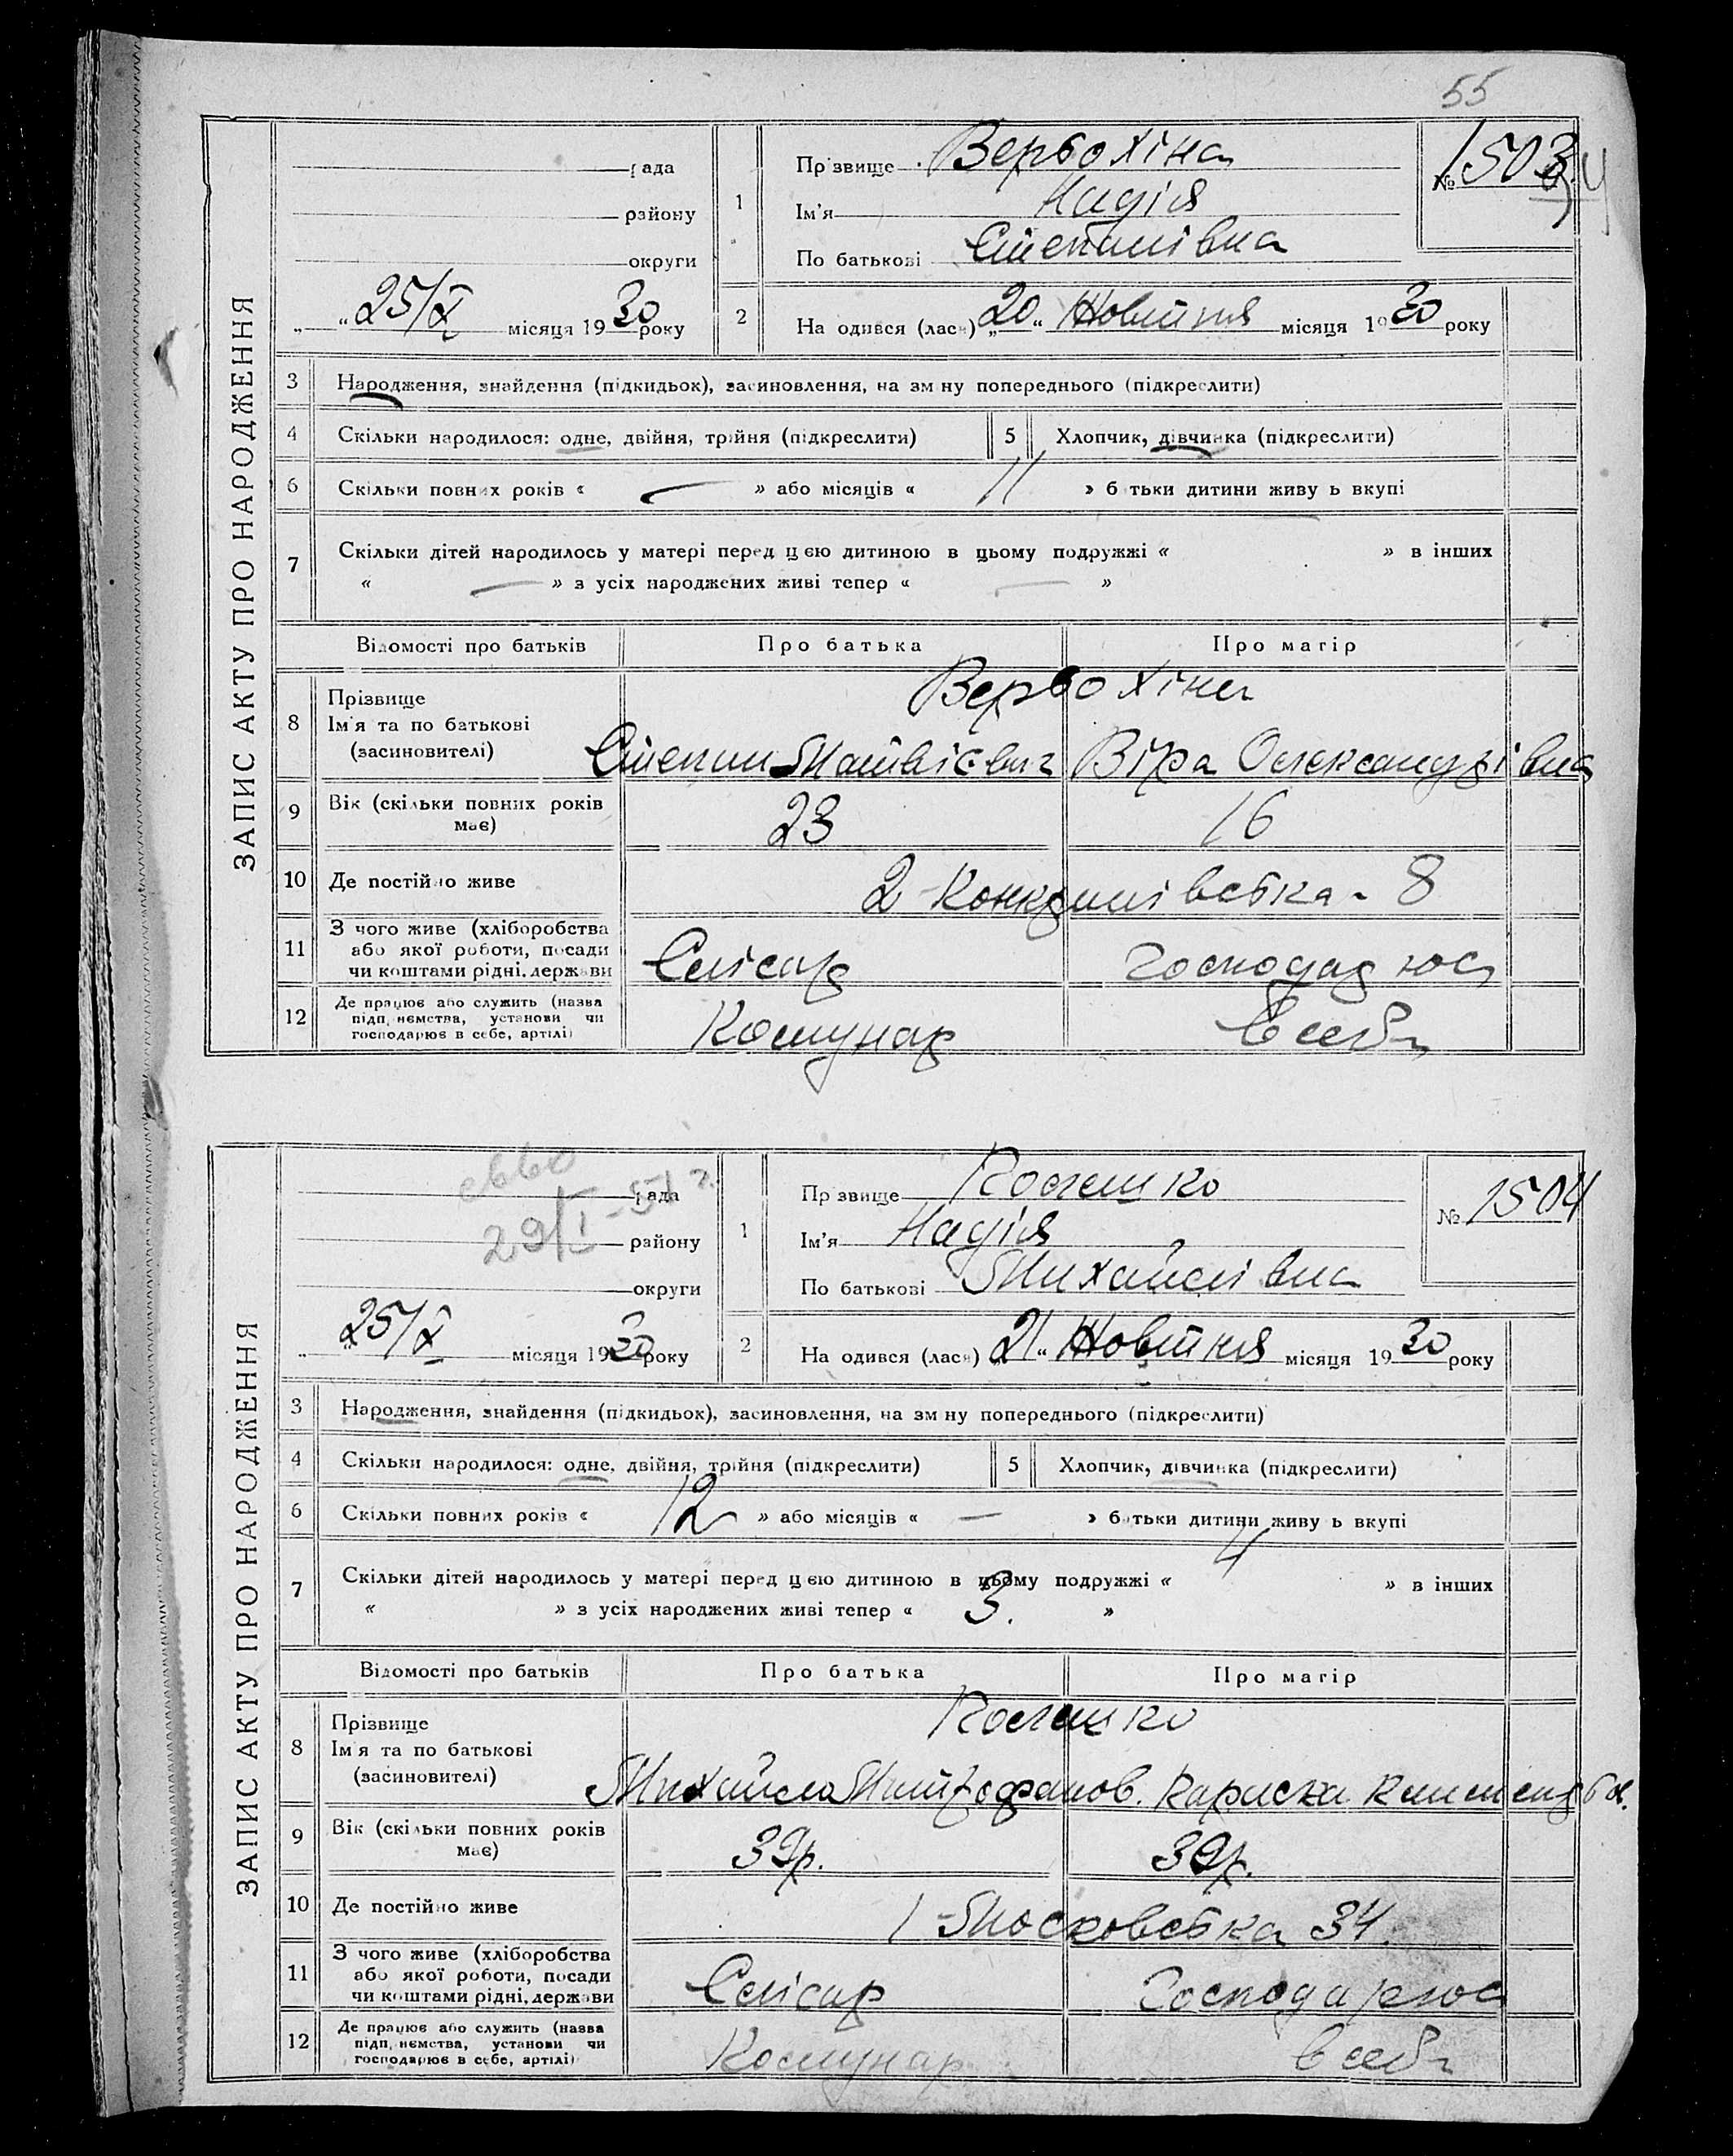 55
ЗАПИС АКТУ ПРО НАРОДЖЕННЯ
рада
району
округи
„ “ 25/X місяця 1930 року
1
Прізвище Вербохіна
Ім'я Надія
По батькові Степанівна
№ 1503
2
На одився (лася) „20“ Жовтня місяця 1930 року
3 Народження, знайдення (підкидьок), засиновлення, на зм ну попереднього (підкреслити)
4 Скільки народилося: одне, двійня, трійня (підкреслити)
5 Хлопчик, дівчинка (підкреслити)
6 Скільки повних років « — » або місяців « 11 » б тьки дитини живу ь вкупі
7 Скільки дітей народилось у матері перед цею дитиною в цьому подружжі « » в інших
« — » з усіх народжених живі тепер « — »
Відомості про батьків Про батька Про матір
8 Прізвище
Ім'я та по батькові
(засиновителі)
Вербохіна
Степан Матвієвич Віра Олександрівна
9 Вік (скільки повних років має) 23 16
10 Де постійно живе 2-Конкринівська - 8
11 З чого живе (хліборобства
або якої роботи, посади
чи коштами рідні, держави
Слісар Господарює
12 Де працює або служить (назва
підп, немства, установи чи
господарює в себе, артілі)
Комунар В себе
ЗАПИС АКТУ ПРО НАРОДЖЕННЯ
29/I-51 г.
рада
району
округи
„ “ 25/X місяця 1930 року
1
Прізвище Колешко
Ім'я Надія
По батькові Михайлівна
№ 1504
2
На одився (лася) „21“ Жовтня місяця 1930 року
3 Народження, знайдення (підкидьок), засиновлення, на зм ну попереднього (підкреслити)
4 Скільки народилося: одне, двійня, трійня (підкреслити)
5 Хлопчик, дівчинка (підкреслити)
6 Скільки повних років « 12 » або місяців « — » батьки дитини живу ь вкупі
7 Скільки дітей народилось у матері перед цею дитиною в цьому подружжі « 4 » в інших
« » з усіх народжених живі тепер « 3. »
Відомості про батьків Про батька Про матір
8 Прізвище
Ім'я та по батькові
(засиновителі)
Колешко
Михайло Митрофанов.
9 Вік (скільки повних років має) 39р. 39р.
10 Де постійно живе 1-Московська 34.
11 З чого живе (хліборобства
або якої роботи, посади
чи коштами рідні, держави
Слісар Господарює
12 Де працює або служить (назва
підп, немства, установи чи
господарює в себе, артілі)
Комунар в себе